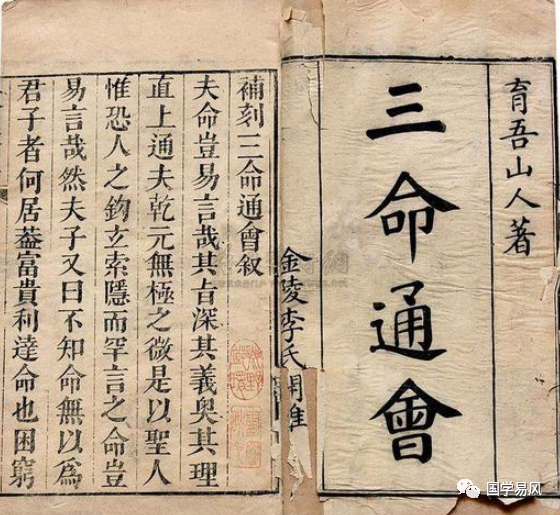 育吾山人著
三命通會
金陵李氏
補刻三命通會叙
夫命豈易言哉其旨深其義奥其理
直上通夫乾元無極之微是以聖人
惟恐人之鈎玄索隱而罕言之命豈
易言哉然夫子又曰不知命無以爲
君子者何居葢富貴利達命也困窮
国学易风